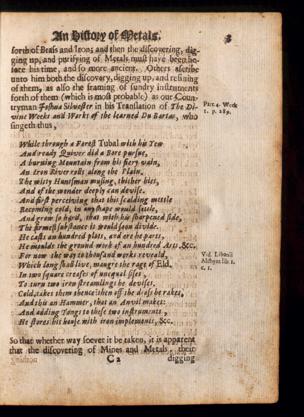 An History of Metals.
3
forth of Brass and Iron; and then the discovering, dig-
ging up, and purifying of Metals must have been be-
fore his time, and so more ancient. Others ascribe
unto him both the discovery, digging up, and refining
of them, as also the framing of sundry instruments
forth of them (which is most probable) as our Coun-
tryman Joshua Silvester in his Translation of The Di-
vine Weeks and Works of the learned Du Bartas, who
singeth thus,
Part. 4. Week
1. p. 289.
While through a Forest Tubal with his Yew
And ready Quiver did a Bore pursue,
A burning Mountain from his fiery vain,
An Iron River rolls along the Plain.
The witty Huntsman musing, thither hies,
And of the wonder deeply can devise.
And first perceiving that this scalding mettle
Becoming cold, in any shape would settle,
And grow so hard, that with his sharpened side,
The firmest substance it would soon divide.
He casts an hundred plots, and ere he parts,
He moulds the ground work of an hundred Arts, &c.
For now the way to thousand works reveald,
Which long shall live, maugre the rage of Eld.
In two square creases of unequal sises,
To turn two iron streamlings he devises,
Cold, takes them thence: then off the dross he rakes,
And this an Hammer, that an Anvil makes:
And adding Tongs to these two instruments,
He stores his house with iron implements, &c.
Vid. Libavii
Alchym. lib. 1.
c. 1.
So that whether way soever it be taken, it is apparent
that the discovering of Mines and Metals, their
C 2
digging